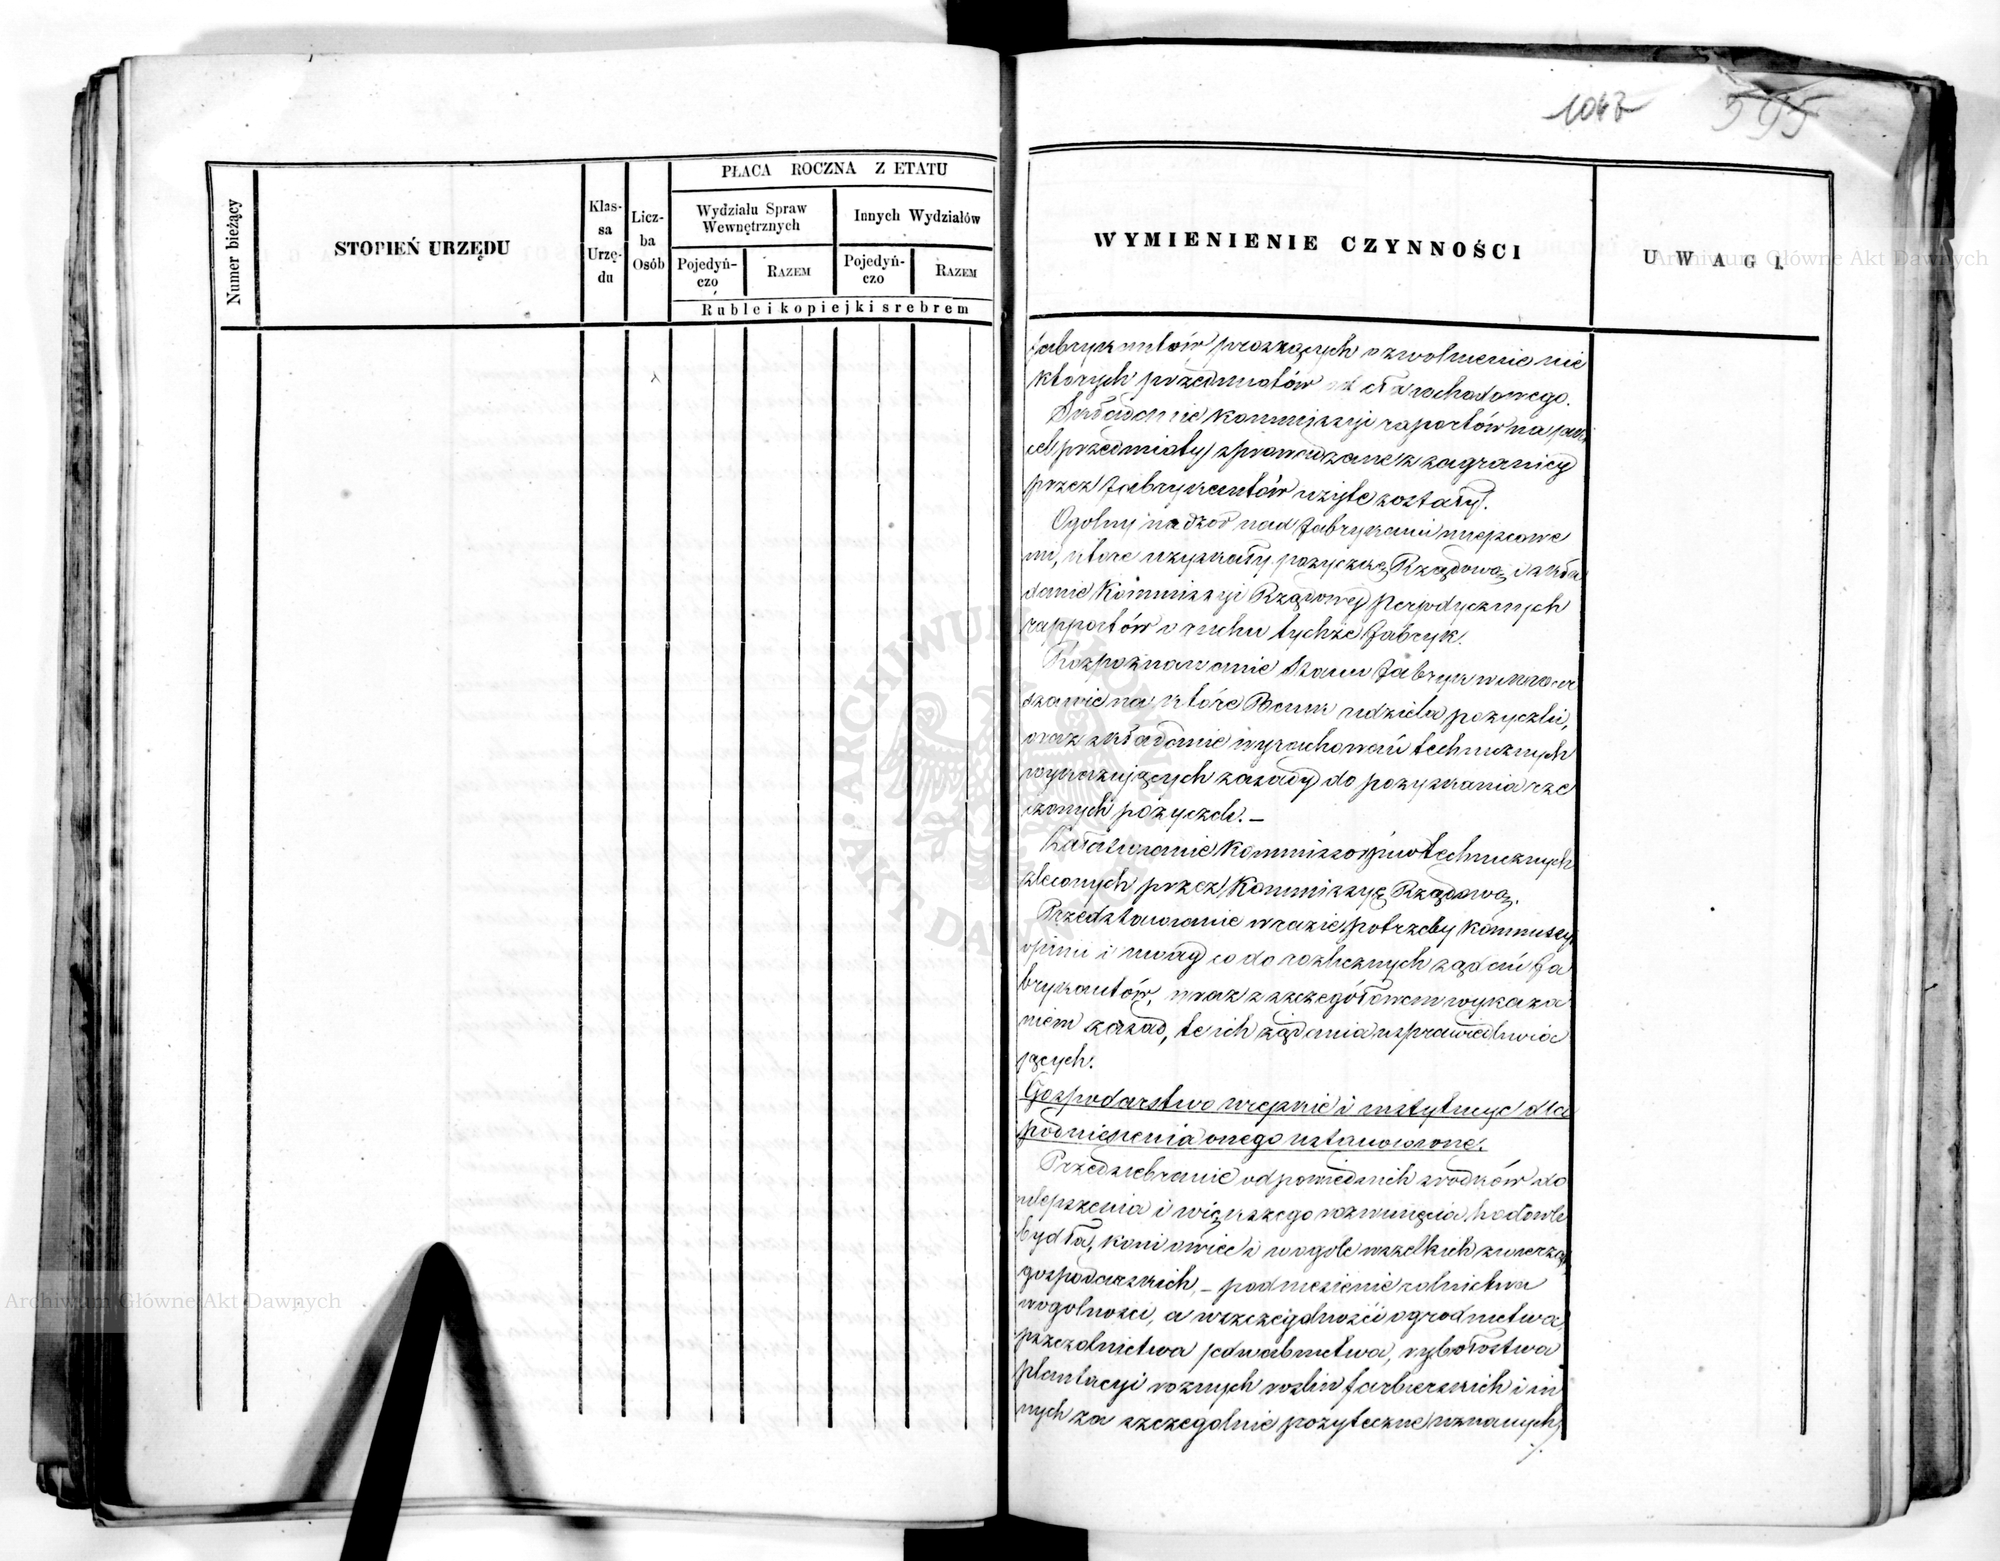 1047
595
PŁACA ROCZNA Z ETATU
Numer bieżący
STOPIEŃ URZĘDU
Klas-
sa
Urzę-
du
Licz-
ba
Osób
Wydziału Spraw
Wewnętrznych
Innych Wydziałów
Pojedyń-
czo
RAZEM
Pojedyń-
czo
RAZEM
Ruble i kopiejki srebrem
WYMIENIENIE CZYNNOŚCI
UWAGI.
fabrykantów proszących o zwolnienie nie
których przedmiotów od cła wchodowego.
Składanie Kommissyi raportów na jaki
cel przedmioty sprowadzane z zagranicy
przez fabrykantów użyte zostały.
Ogolny nadzor nad fabrykami miejscowe
mi, które uzyskały pożyczkę Rządową i skła
danie Kommissyi Rządowej peryodycznych
rapportów o ruchu tychże fabryk.
Rozpoznawanie stanu fabryk w War
szawie na które Bank udziela pożyczki,
oraz składanie wyrachowań technicznych
wykazujących zasady do pozyskania rze
czonych pożyczek. —
Załatwianie Kommissoryów technicznych
zleconych przez Kommissyę Rządową.
Przedstawianie w razie potrzeby Kommissyi
opinii i uwag co do rozlicznych żądań fa
brykantów, wraz z szczegółowem wykaza
niem zasad, te ich żądania usprawiedliwia
jących.
Gospodarstwo wiejskie i instytucye dla
podniesienia onego ustanowione.
Przedsiębranie odpowiednich srodków do
ulepszenia i większego rozwinięcia hodowli
bydła, koni owiec i w ogole wszelkich zwierząt
gospodarskich, — podniesienie rolnictwa
w ogolności, a w szczególności ogrodnictwa,
pszczolnictwa jedwabnictwa, rybołostwa
plantacyi roznych roslin farbierskich i in
nych za szczegolnie pożyteczne uznanych,
Archiwum Główne Akt Dawnych
Archiwum Główne Akt Dawnych
ARCHIWUM GŁÓWNE AKT DAWNYCH